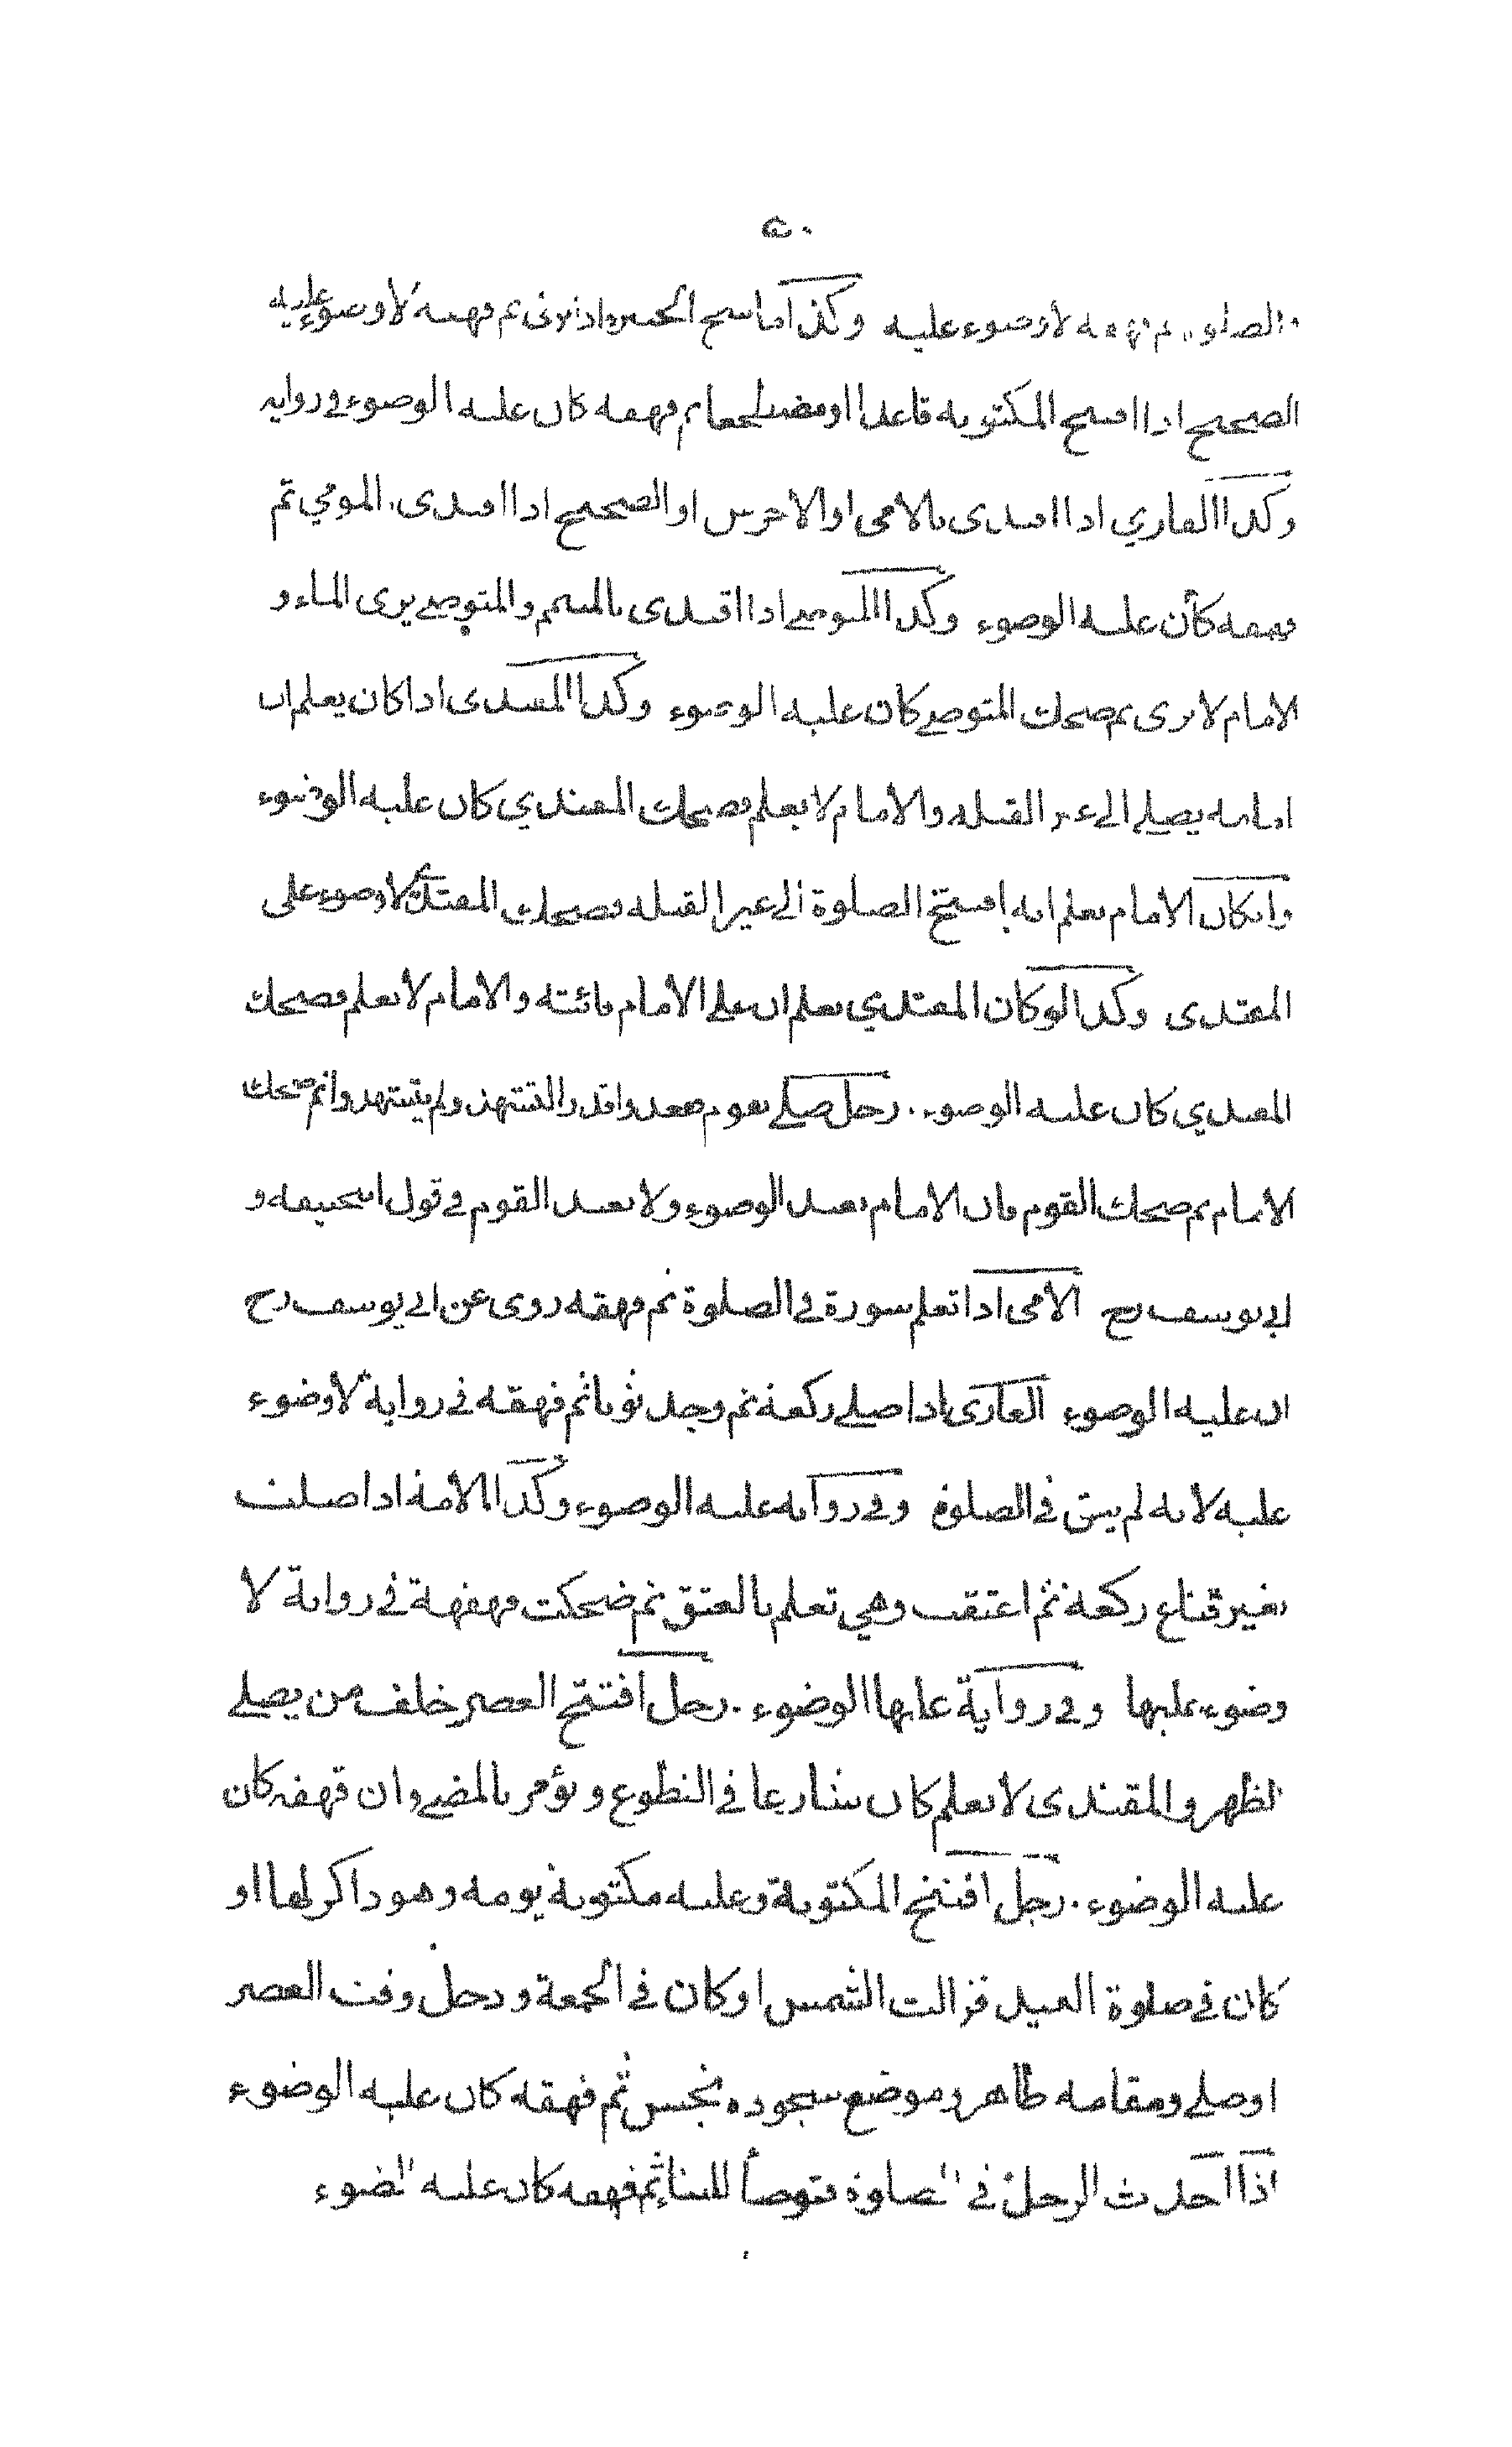 ٥٠
الصلوة ثم قهقه لا وضوء عليه وكذا ماسح الجبيرة اذا برئ ثم قهقه لا وضوء عليه
الصحيح اذا افتتح المكتوبة قاعدا او مضطجعا ثم قهقه كان عليه الوضوء في رواية
وكذا القاري اذا اقتدى بالامي او الاخرس او الصحيح اذا اقتدى المومي ثم
قهقه كان عليه الوضوء وكذا المتوضے اذا اقتدى بالمتيمم والمتوضے يرى الماء و
الامام لا يرى ثم ضحك المتوضے كان عليه الوضوء وكذا المقتدى اذا كان يعلم ان
امامه يصلے الى غير القبلة والامام لا يعلم فضحك المقتدي كان عليه الوضوء
وان كان الامام يعلم انه افتتح الصلوة الى غير القبلة فضحك المقتدي لا وضوء على
المقتدى وكذا لو كان المقتدي يعلم ان على الامام فائتة والامام لا يعلم فضحك
المقتدي كان عليه الوضوء . رجل صلے بقوم فقعدوا قدر التشهد ولم يتشهدوا ثم ضحك
الامام ثم ضحك القوم فان الامام يعيد الوضوء ولا يعيد القوم في قول ابيحنيفة و
ابي يوسف رح الامي اذا تعلم سورة في الصلوة ثم قهقه روى عن ابي يوسف رح
ان عليه الوضوء العارى اذا صلے ركعة ثم وجد ثوبا ثم قهقه في رواية لا وضوء
عليه لانه لم يبق في الصلوة وفي رواية عليه الوضوء وكذا الامة اذا صلت
بغير قناع ركعة ثم اعتقت وهي تعلم بالعتق ثم ضحكت قهقهة في رواية لا
وضوء عليها وفي رواية عليها الوضوء . رجل افتتح العصر خلف من يصلے
الظهر والمقتدى لا يعلم كان شارعا في التطوع ويؤمر بالمضے وان قهقه كان
عليه الوضوء . رجل افتتح المكتوبة وعليه مكتوبة يومه وهو ذاكر لها او
كان في صلوة العيد فزالت الشمس او كان في الجمعة ودخل وقت العصر
او صلے ومقامه طاهر وموضع سجوده نجس ثم قهقه كان عليه الوضوء
اذا احدث الرجل في الصلوة فتوضأ للبناء ثم قهقه كان عليه الوضوء